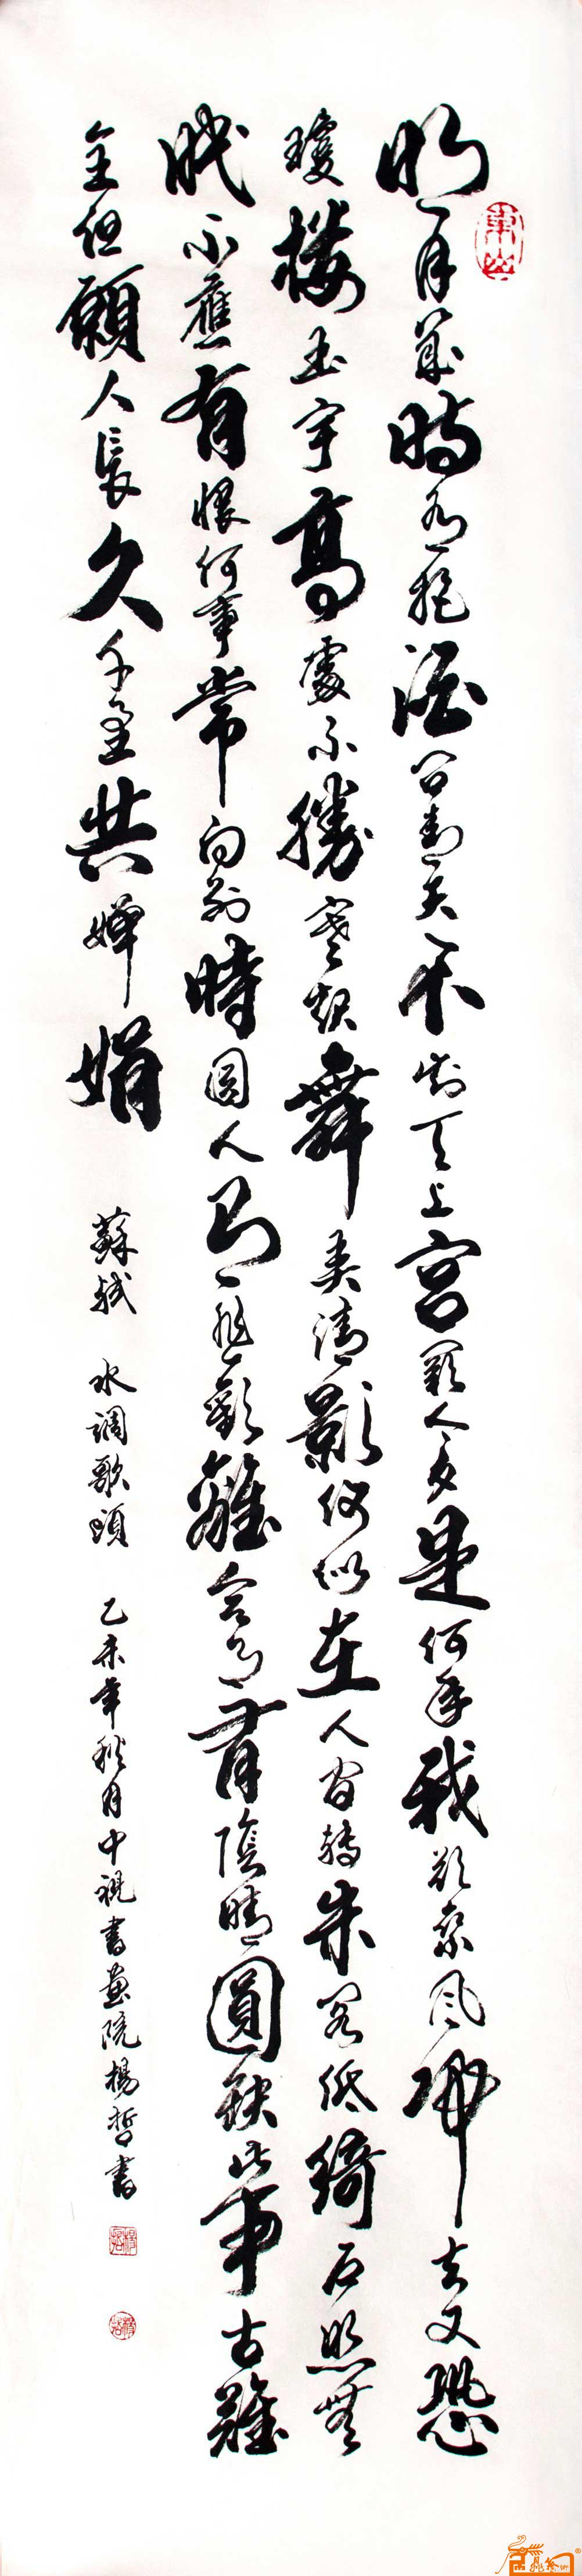 明月幾時有把酒問青天不知天上宮闕今夕是何年我欲乘風歸去又恐
瓊樓玉宇高處不勝寒起舞弄清影何似在人間轉朱閣低綺戶照無
眠不應有恨何事常向別時圓人有悲歡離合月有陰晴圓缺此事古難
全但願人長久千里共嬋娟
蘇軾 水調歌頭 乙未年秋月中視書畫院楊哲書